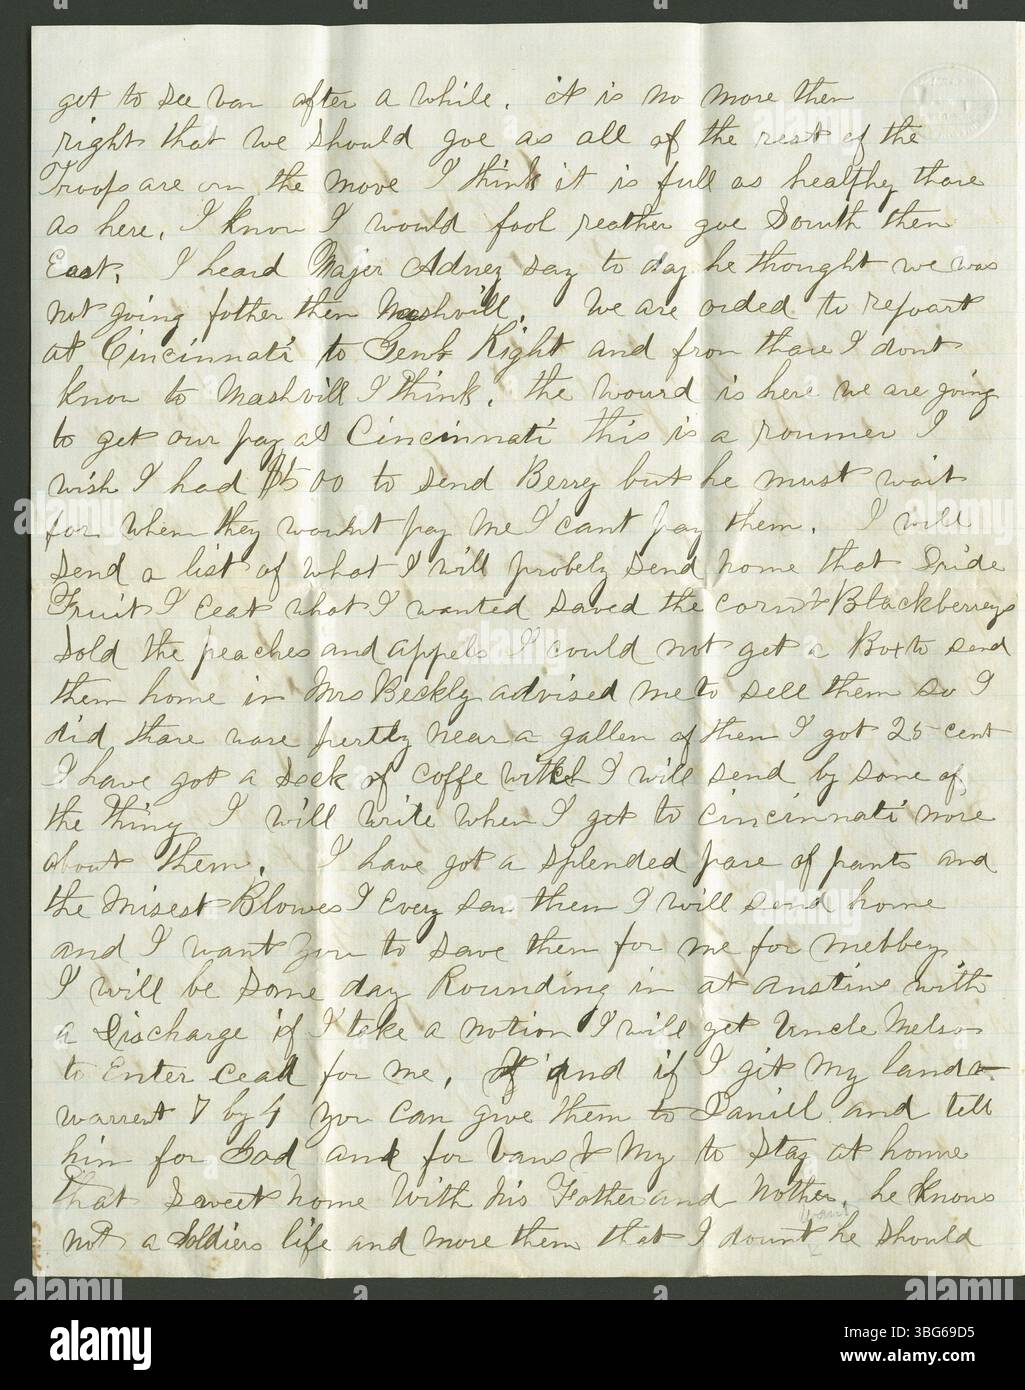 get to see van after a while. it is no more then
right that we should goe as all of the rest of the
Troops are on the move I think it is full as healthy thare
as here. I know I would fool reather goe South then
East. I heard Majer Adney say to day he thought we was
not going fother then Nashvill. We are orded to repoart
at Cincinnati to Genl Right and from thare I dont
know to Nashvill I think. the wourd is here we are going
to get our pay at Cincinnati this is a roumer I
wish I had $5 00 to send Berry but he must wait
for when they wount pay me I cant pay them. I will
send a list of what I will probely send home that Dride
Fruit I eat what I wanted saved the corn & Blackberreys
sold the peaches and appels I could not get a Box to send
them home in Mrs Beckly advised me to sell them so I
did thare ware pertly near a gallen of them I got 25 cent
I have got a sack of coffe witch I will send by some of
the thing I will write when I get to Cincinnati more
about them. I have got a splended pare of pants and
the nisest Blowes I every saw them I will send home
and I want you to save them for me for mebbey
I will be some day Rounding in at austins with
a Discharge if I take a notion I will get Uncle Nelson
to Enter Lead for me. and if I git my land
warrent 7 by 9 you can give them to Daniel and tell
him for God and for Vans & My to stay at home
that sweet home with his Father and Mother. he knows
not a Soldiers life and more then that I dount he should
want
alamy
Image ID: 3BG69D5
www.alamy.com